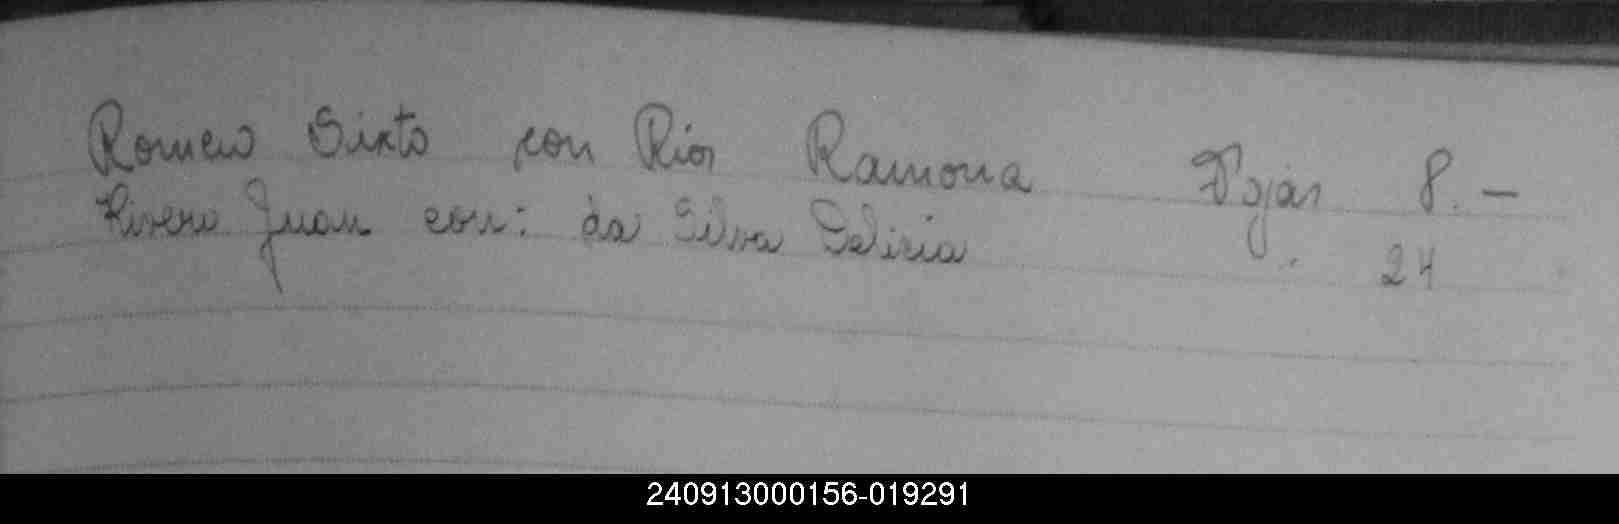 Romero Sixto con Ríos Ramona Fojas 8.—
Rivero Juan con: da Silva Delicia " 24
240913000156-019291